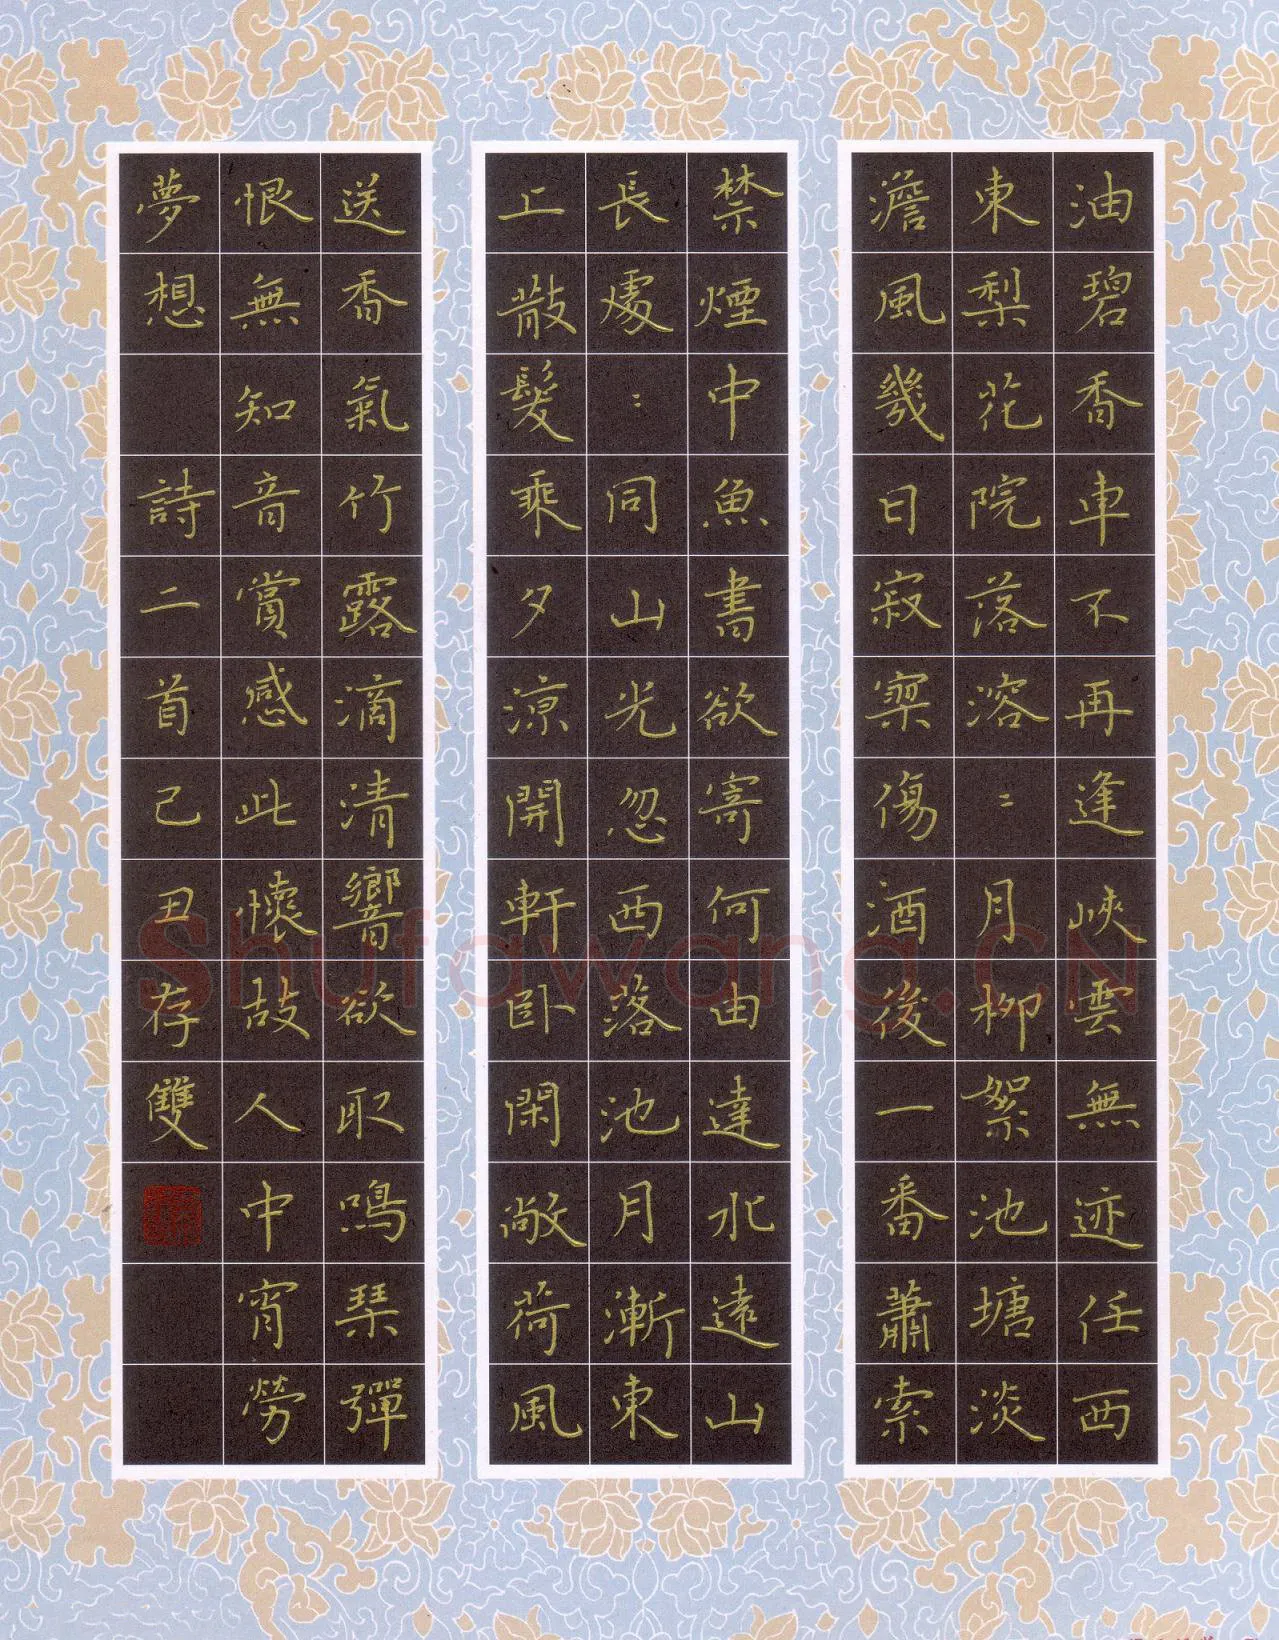 油碧香車不再逢峽雲無迹任西
東梨花院落溶〻月柳絮池塘淡
澹風幾日寂寞傷酒後一番蕭索
禁煙中魚書欲寄何由達水遠山
長處〻同山光忽西落池月漸東
上散髮乘夕涼開軒卧閑敞荷風
送香氣竹露滴清響欲取鳴琴彈
恨無知音賞感此懷故人中宵勞
夢想 詩二首己丑存雙
Shufawang.CN